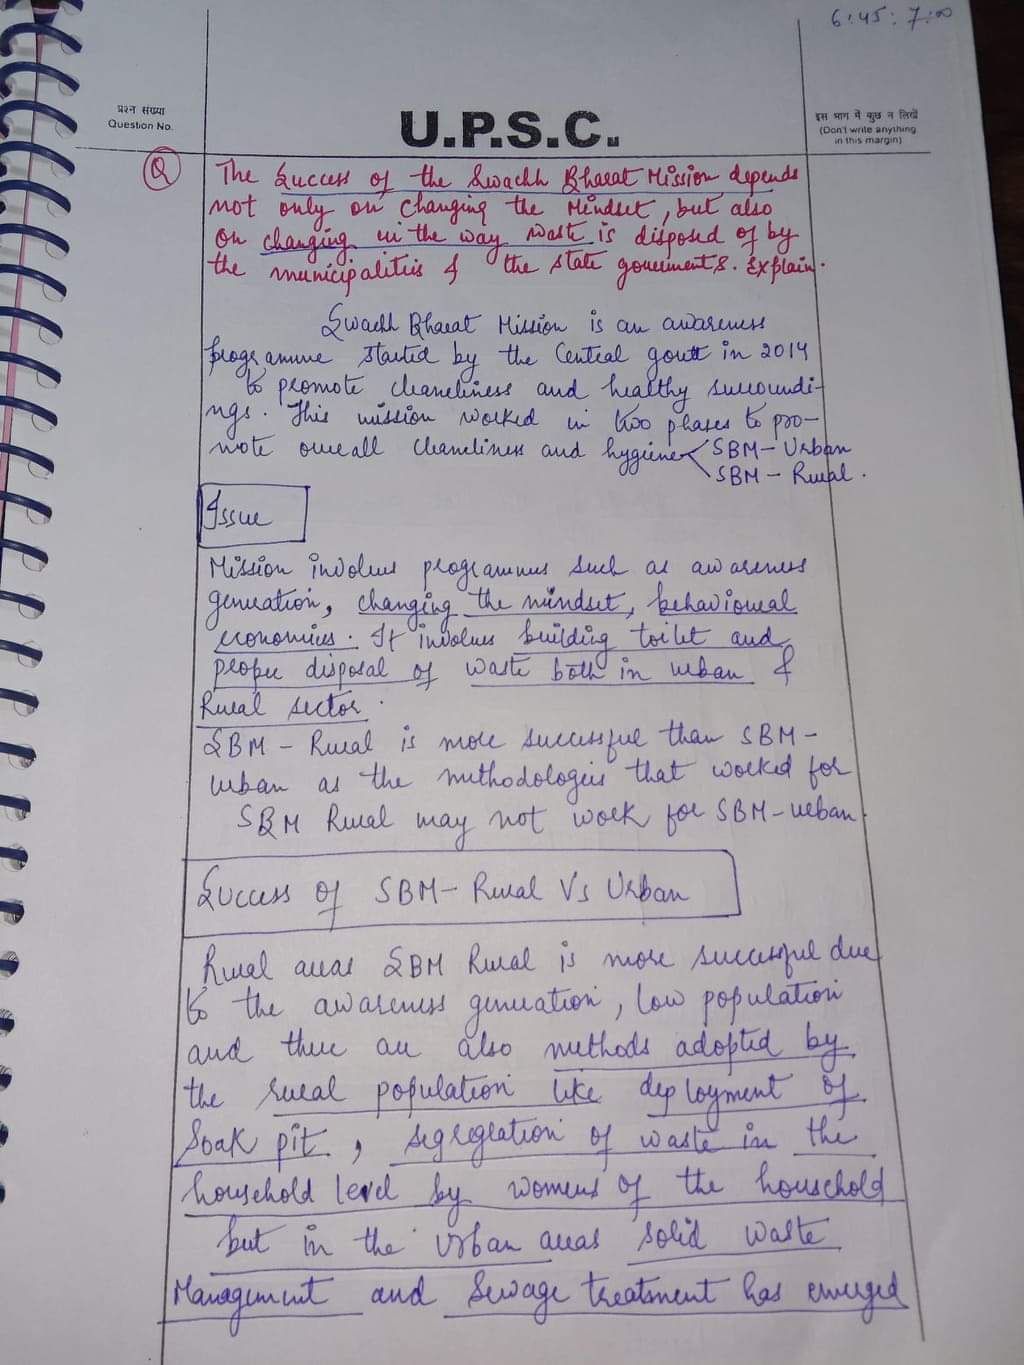 6:45: 7:00
प्रश्न संख्या
Question No.
U.P.S.C.
इस भाग में कुछ न लिखें
(Don't write anything
in this margin)
Q The Success of the Swachh Bharat Mission depends
not only on changing the Mindset, but also
on changing in the way waste is disposed of by
the municipalities & the state governments. Explain.
Swachh Bharat Mission is an awareness
programme started by the Central govt in 2014
to promote cleaneliness and healthy surroundi-
ngs. This mission worked in two phases to pro-
mote overall cleaneliness and hygiene SBM-Urban
SBM - Rural.
Issue
Mission involves programmes such as awareness
generation, changing the mindset, behavioural
economics. It involves building toilet and
proper disposal of waste both in urban &
Rural sector.
SBM - Rural is more successful than SBM-
urban as the methodologies that worked for
SBM Rural may not work for SBM-urban.
Success of SBM-Rural Vs Urban
Rural areas SBM Rural is more successful due
to the awareness generation, low population
and there are also methods adopted by
the rural population like deployment of
Soak pit, segregation of waste in the
household level by womens of the household
but in the Urban areas solid waste
Management and Sewage treatment has emerged